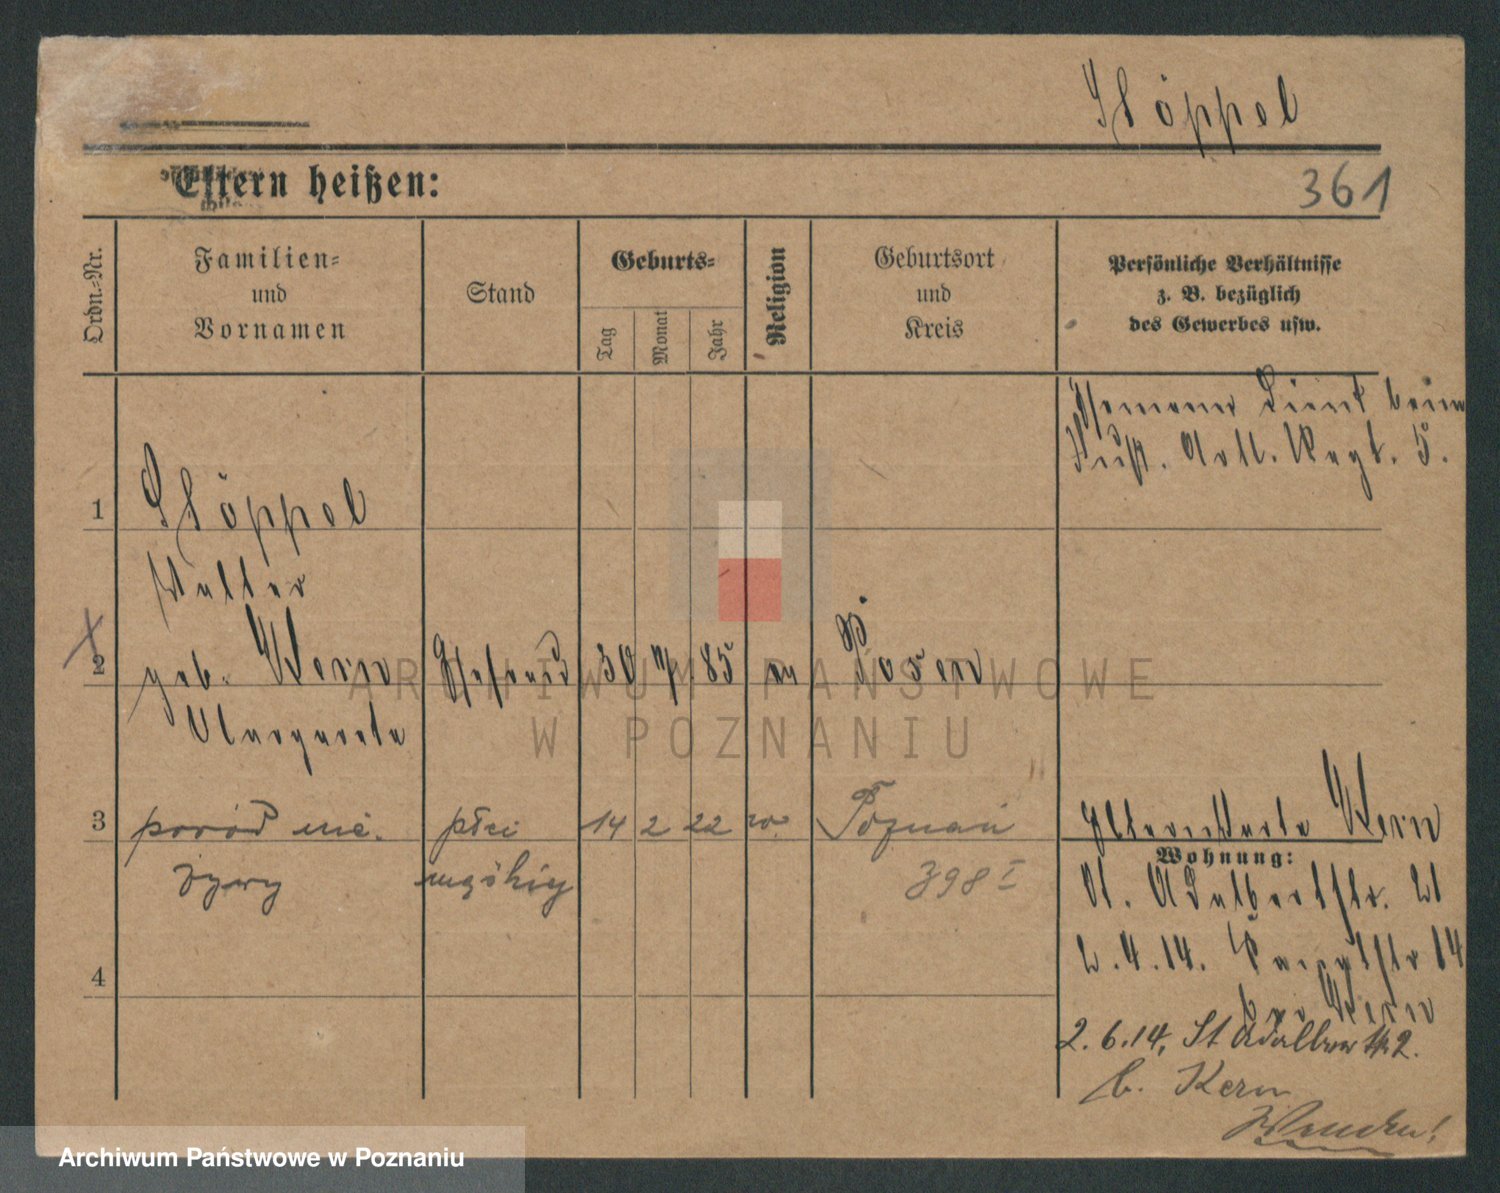 Höppel
Eltern heißen:
361
Ordn.-Nr.
Familien-
und
Vornamen
Stand
Geburts-
Tag
Monat
Jahr
Religion
Geburtsort
und
Kreis
Persönliche Verhältnisse
z. B. bezüglich
des Gewerbes usw.
beim
Fußt. Artl. Regt. 5.
1
Höppel
Walter
2 geb. Kern Ehefrau 30 85 ev Posen
Margarete
3 poród nie- płci 14 2 22 Poznań
żywy męskiej 398 I
Kern
Wohnung:
St. Adalbertstr. 21
2.4.14. 14
4
bei Kern
2.6.14, St Adalbertstr 2.
b. Kern
Wenden!
ARCHIWUM PAŃSTWOWE
W POZNANIU
Archiwum Państwowe w Poznaniu